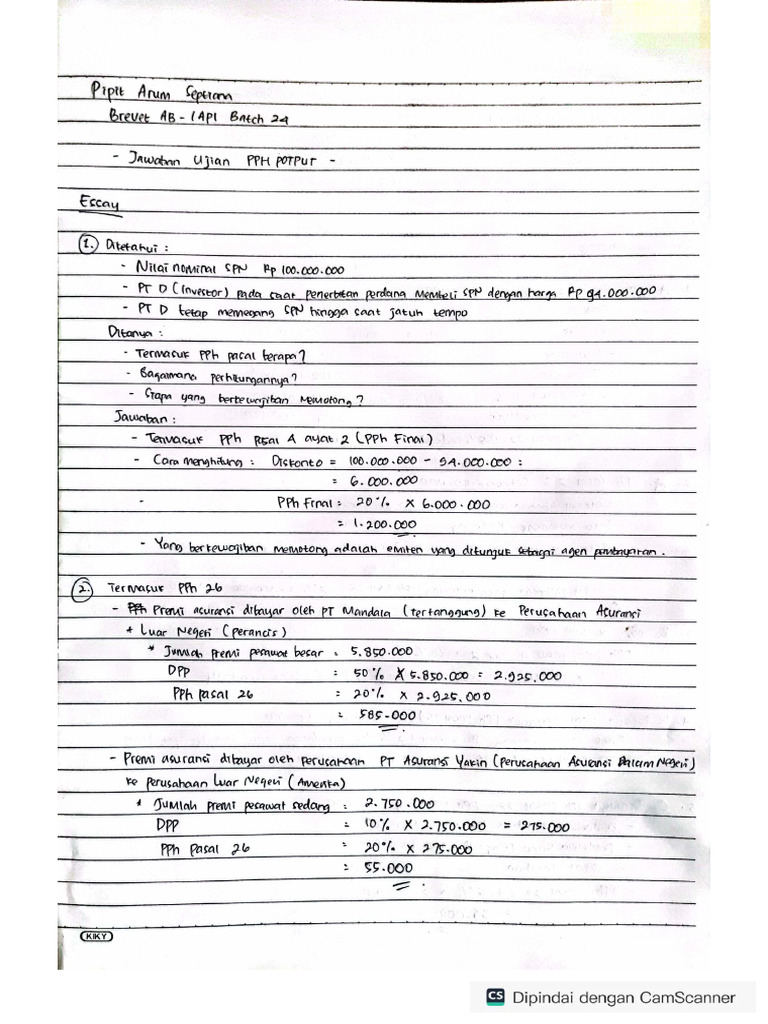 Pipit Arum Septiani
Brevet AB - IAPI Batch 24
- Jawaban Ujian PPH POTPUT -
Essay
1. Diketahui :
- Nilai nominal SPN Rp 100.000.000
- PT D (Investor) pada saat penerbitan perdana membeli SPN dengan harga Rp 94.000.000
- PT D tetap memegang SPN hingga saat jatuh tempo
Ditanya :
- Termasuk PPh pasal berapa?
- Bagaimana perhitungannya?
- Siapa yang berkewajiban memotong?
Jawaban :
- Termasuk PPh Pasal 4 ayat 2 (PPh Final)
- Cara menghitung : Diskonto = 100.000.000 - 94.000.000 :
= 6.000.000
- PPh Final = 20% x 6.000.000
= 1.200.000
- Yang berkewajiban memotong adalah emiten yang ditunjuk sebagai agen pembayaran.
2. Termasuk PPh 26
- Premi asuransi dibayar oleh PT Mandala (tertanggung) ke Perusahaan Asuransi
+ Luar Negeri (Perancis)
* Jumlah premi pesawat besar = 5.850.000
DPP : 50% x 5.850.000 = 2.925.000
PPh pasal 26 = 20% x 2.925.000
= 585.000
- Premi asuransi dibayar oleh perusahaan PT Asuransi Yakin (Perusahaan Asuransi Dalam Negeri)
ke perusahaan Luar Negeri (Amerika)
* Jumlah premi pesawat sedang : 2.750.000
DPP : 10% x 2.750.000 = 275.000
PPh Pasal 26 : 20% x 275.000
: 55.000
KIKY
CS Dipindai dengan CamScanner